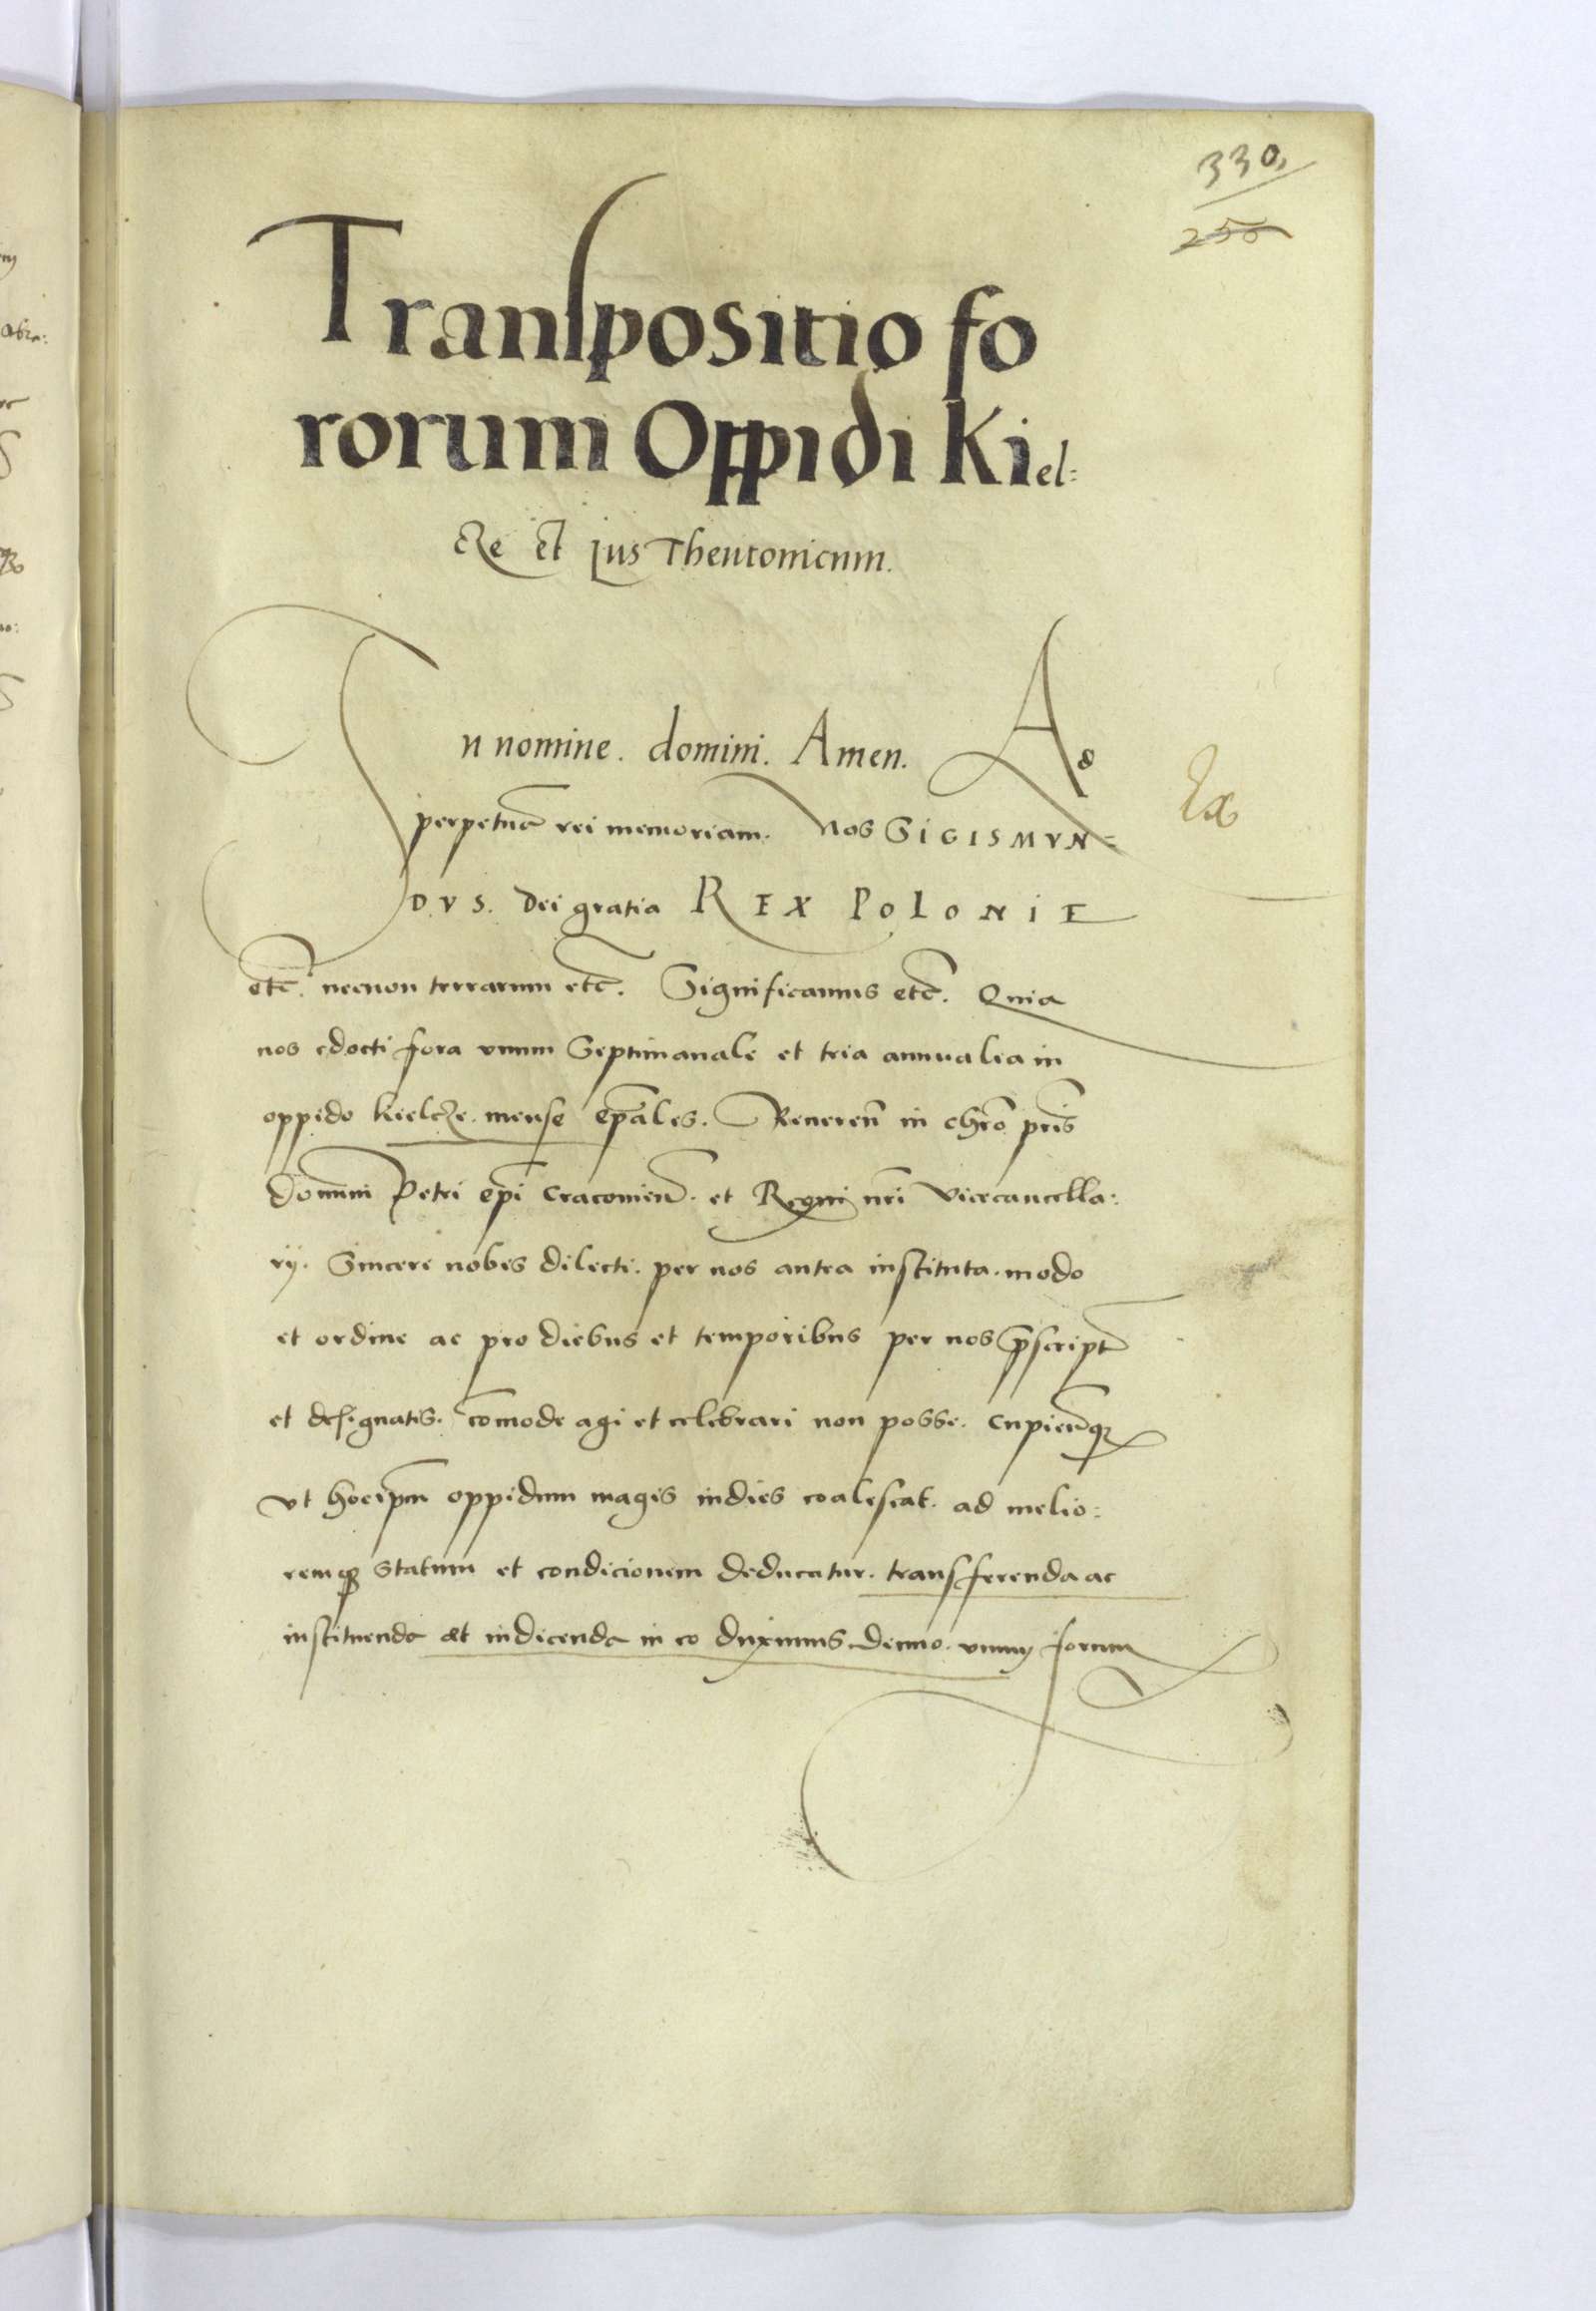 330,
256
Transpositio fo
rorum Oppidi Kiel=
cze et jus Theutonicum.
In nomine. domini. Amen. Ad
perpetuā rei memoriam. Nos SIGISMVN=
DVS. Dei gratia REX POLONIE
etc̄. necnon terrarum etc̄. Significamus etc̄. Quia
nos edocti fora vnum Septimanale et tria annualia in
oppido Kielcze. mense ep̄ales. Reueren̄ in chr̄o pr̄is
domini Petri ep̄i Cracouien̄. et Regni nr̄i Vicecancella:
rij. Sincere nobis dilecti. per nos antea instituta. modo
et ordine ac pro diebus et temporibus per nos p̄script̄
et designatis. cōmode agi et celebrari non posse. Cupien̄q3
vt hocip̄m oppidum magis indies coalescat. ad melio:
remq3 statum et condicionem deducatur. transferenda ac
instituenda et indicenda in eo duximus. Denuo. vnum forum
Ex